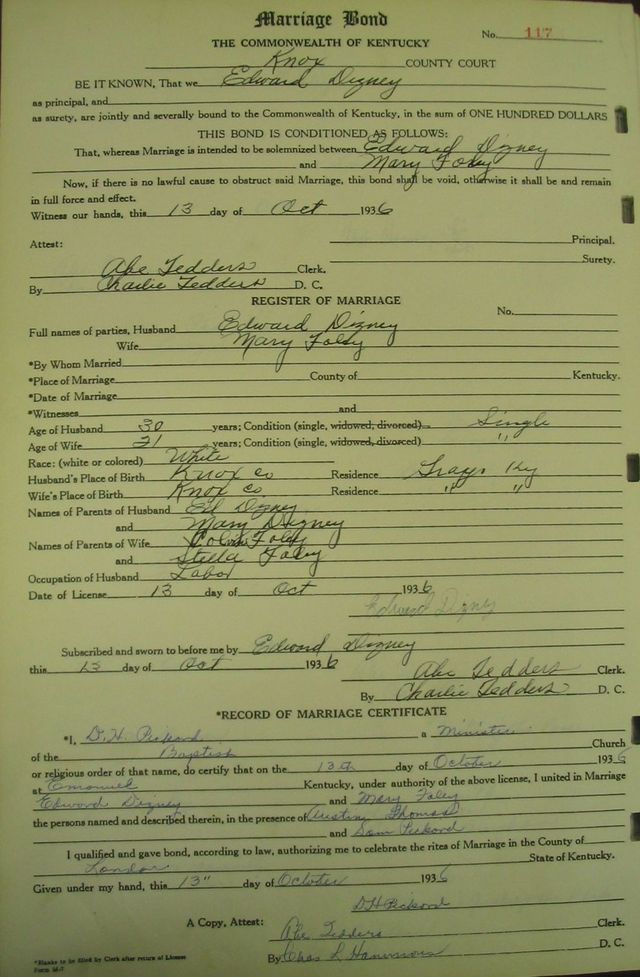 Marriage Bond
No. 117
THE COMMONWEALTH OF KENTUCKY
Knox COUNTY COURT
BE IT KNOWN, That we Edward Dizney
as principal, and
as surety, are jointly and severally bound to the Commonwealth of Kentucky, in the sum of ONE HUNDRED DOLLARS
THIS BOND IS CONDITIONED AS FOLLOWS:
That, whereas Marriage is intended to be solemnized between Edward Dizney
and Mary Foley
Now, if there is no lawful cause to obstruct said Marriage, this bond shall be void, otherwise it shall be and remain
in full force and effect.
Witness our hands, this 13 day of Oct 1936
Attest: Principal.
Surety.
Abe Tedders Clerk.
By Charlie Tedders D. C.
REGISTER OF MARRIAGE
No.
Full names of parties, Husband Edward Dizney
Wife Mary Foley
*By Whom Married
*Place of Marriage County of Kentucky.
*Date of Marriage
*Witnesses and
Age of Husband 30 years; Condition (single, widowed, divorced) Single
Age of Wife 21 years; Condition (single, widowed, divorced) "
Race: (white or colored) White
Husband's Place of Birth Knox Co Residence Grays Ky
Wife's Place of Birth Knox Co Residence " "
Names of Parents of Husband Ed Dizney
and Mary Dizney
Names of Parents of Wife Foley
and Stella Foley
Occupation of Husband Labor
Date of License 13 day of Oct 1936
Edward Dizney
Subscribed and sworn to before me by Edward Dizney
this 13 day of Oct 1936
Abe Tedders Clerk.
By Charlie Tedders D. C.
*RECORD OF MARRIAGE CERTIFICATE
*I, D. H. Pickard a Minister
of the Baptist Church
or religious order of that name, do certify that on the 13th day of October 1936
at Emanuel Kentucky, under authority of the above license, I united in Marriage
Edward Dizney and Mary Foley
the persons named and described therein, in the presence of Austin Thomas
and Sam Pickard
I qualified and gave bond, according to law, authorizing me to celebrate the rites of Marriage in the County of
State of Kentucky.
Given under my hand, this 13" day of October 1936
D H Pickard
A Copy, Attest: Abe Tedders Clerk.
By Chas L Hammons D. C.
*Blanks to be filled by Clerk after return of License